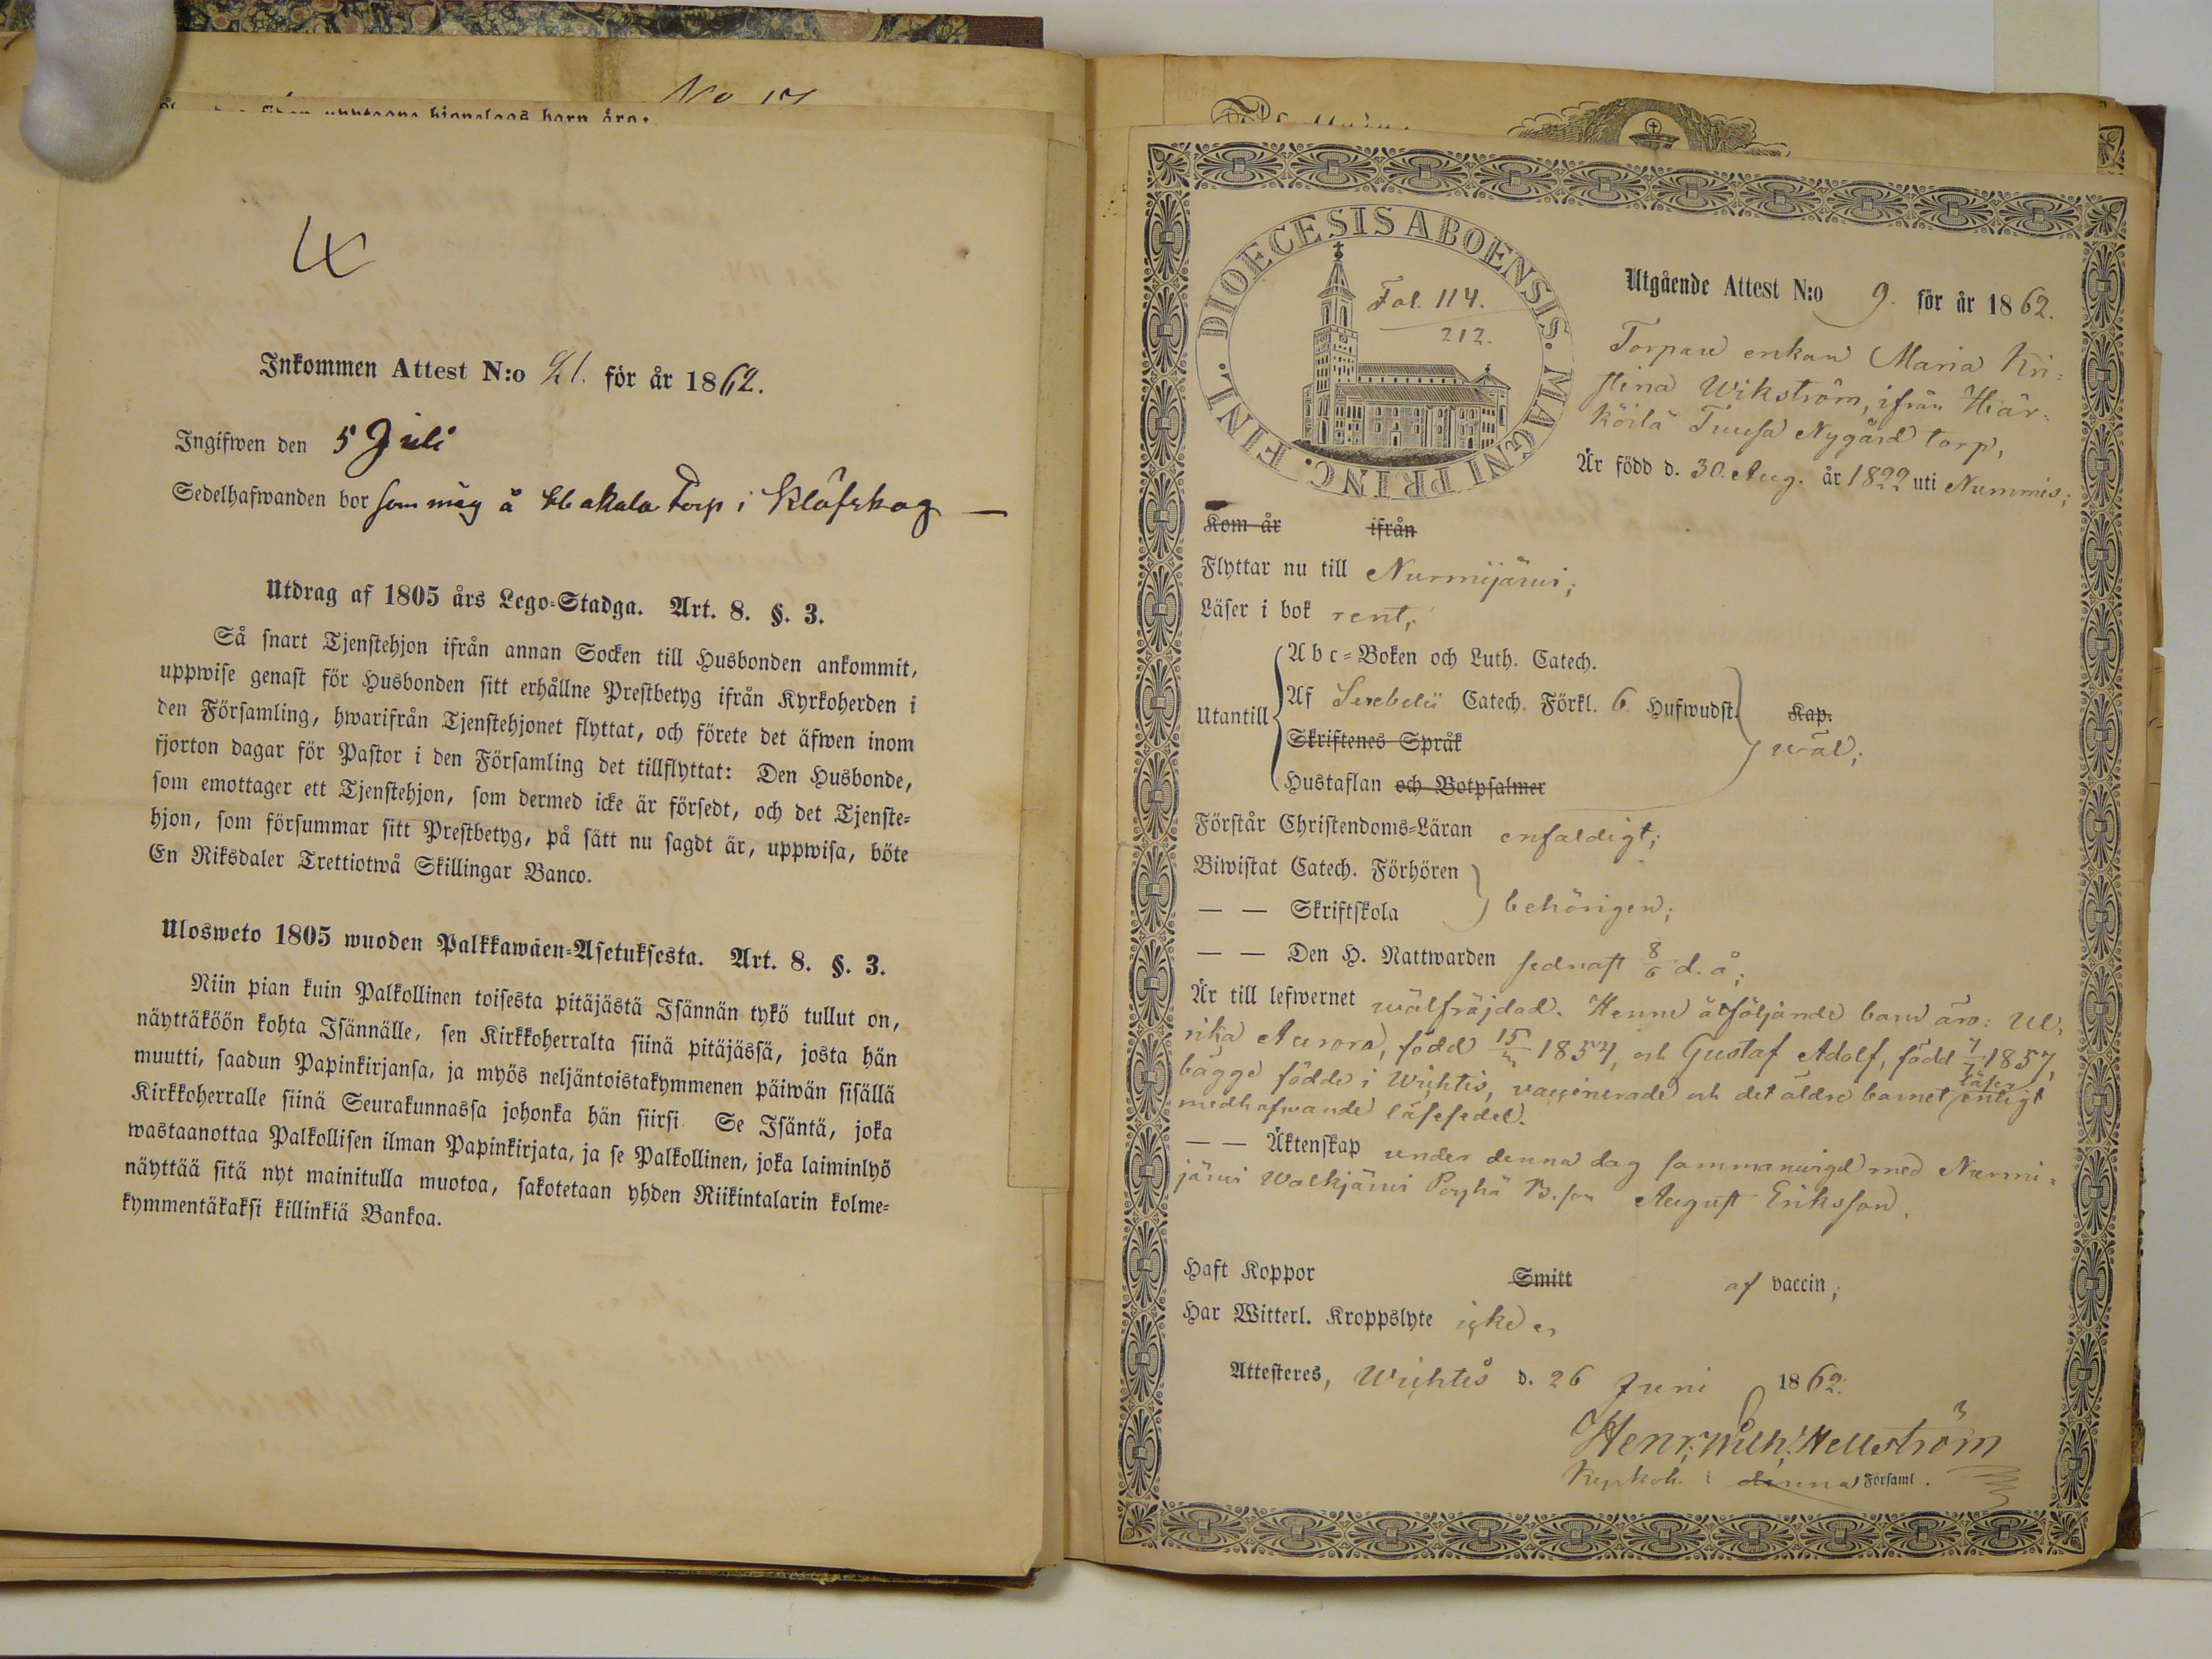 No 17
4
Inkommen Attest N:o 21. för år 1862.
Ingifwen den 5 Juli
Sedelhafwanden bor som måg å Torp i Klöfskog —
Utdrag af 1805 års Lego-Stadga. Art. 8. §. 3.
Så snart Tjenstehjon ifrån annan Socken till Husbonden ankommit,
uppwise genast för Husbonden sitt erhållne Prestbetyg ifrån Kyrkoherden i
den Församling, hwarifrån Tjenstehjonet flyttat, och förete det äfwen inom
fjorton dagar för Pastor i den Församling det tillflyttat: Den Husbonde,
som emottager ett Tjenstehjon, som dermed icke är försedt, och det Tjenste-
hjon, som försummar sitt Prestbetyg, på sätt nu sagdt är, uppwisa, böte
En Riksdaler Trettiotwå Skillingar Banco.
Ulosweto 1805 wuoden Palkkawäen-Asetuksesta. Art. 8. §. 3.
Niin pian kuin Palkollinen toisesta pitäjästä Isännän tykö tullut on,
näyttäköön kohta Isännälle, sen Kirkkoherralta siinä pitäjässä, josta hän
muutti, saadun Papinkirjansa, ja myös neljäntoistakymmenen päiwän sisällä
Kirkkoherralle siinä Seurakunnassa johonka hän siirsi. Se Isäntä, joka
wastaanottaa Palkollisen ilman Papinkirjata, ja se Palkollinen, joka laiminlyö
näyttää sitä nyt mainitulla muotoa, sakotetaan yhden Riikintalarin kolme-
kymmentäkaksi killinkiä Bankoa.
DIOECESIS ABOENSIS. MAGNI PRINC. FINL.
Fol. 114.
212.
Utgående Attest N:o 9. för år 1862.
Torpare enkan Maria Kri-
stina Wikström, ifrån Här-
köilä Tuusa Nygård torp,
Är född d. 30. Aug. år 1822 uti Nummis;
Kom år ifrån
Flyttar nu till Nurmijärwi;
Läser i bok rent;
Utantill
Abc-Boken och Luth. Catech.
Af Swebelii Catech. Förkl. 6 Hufwudst. Kap.
Skriftenes Språk
wäl;
Hustaflan och Botpsalmer
Förstår Christendoms-Läran enfaldigt;
Biwistat Catech. Förhören
— — Skriftskola behörigen;
— — Den H. Nattwarden sednast 8/6 d. å;
Är till lefwernet wälfräjdad. Henne åtföljande barn äro: Ul-
rika Aurora, född 15/ 1854, och Gustaf Adolf, född 1857,
bägge födde i Wichtis, vaccinerade och det äldre barnet läser enligt
medhafwande läsesedel.
— — Äktenskap under denna dag sammanwigd med Nurmi-
järwi Walkjärwi Pöyhä B. son August Eriksson.
Haft Koppor Smitt af vaccin;
Har Witterl. Kroppslyte icke
Attesteres, Wichtis d. 26 Juni 1862.
Henr. Wilh. Hellström
Kyrkoh. i denna Församl.